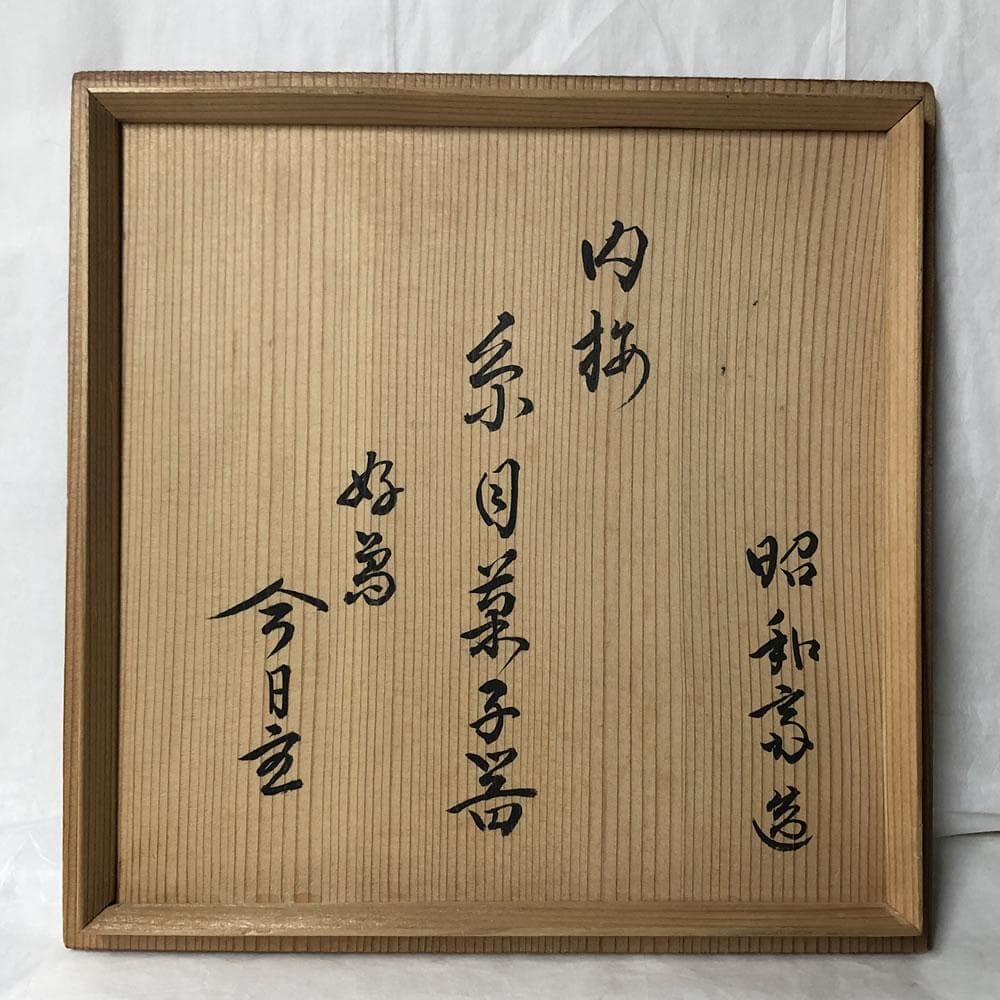 昭和斎造
内梅
糸目菓子器
好
今日主